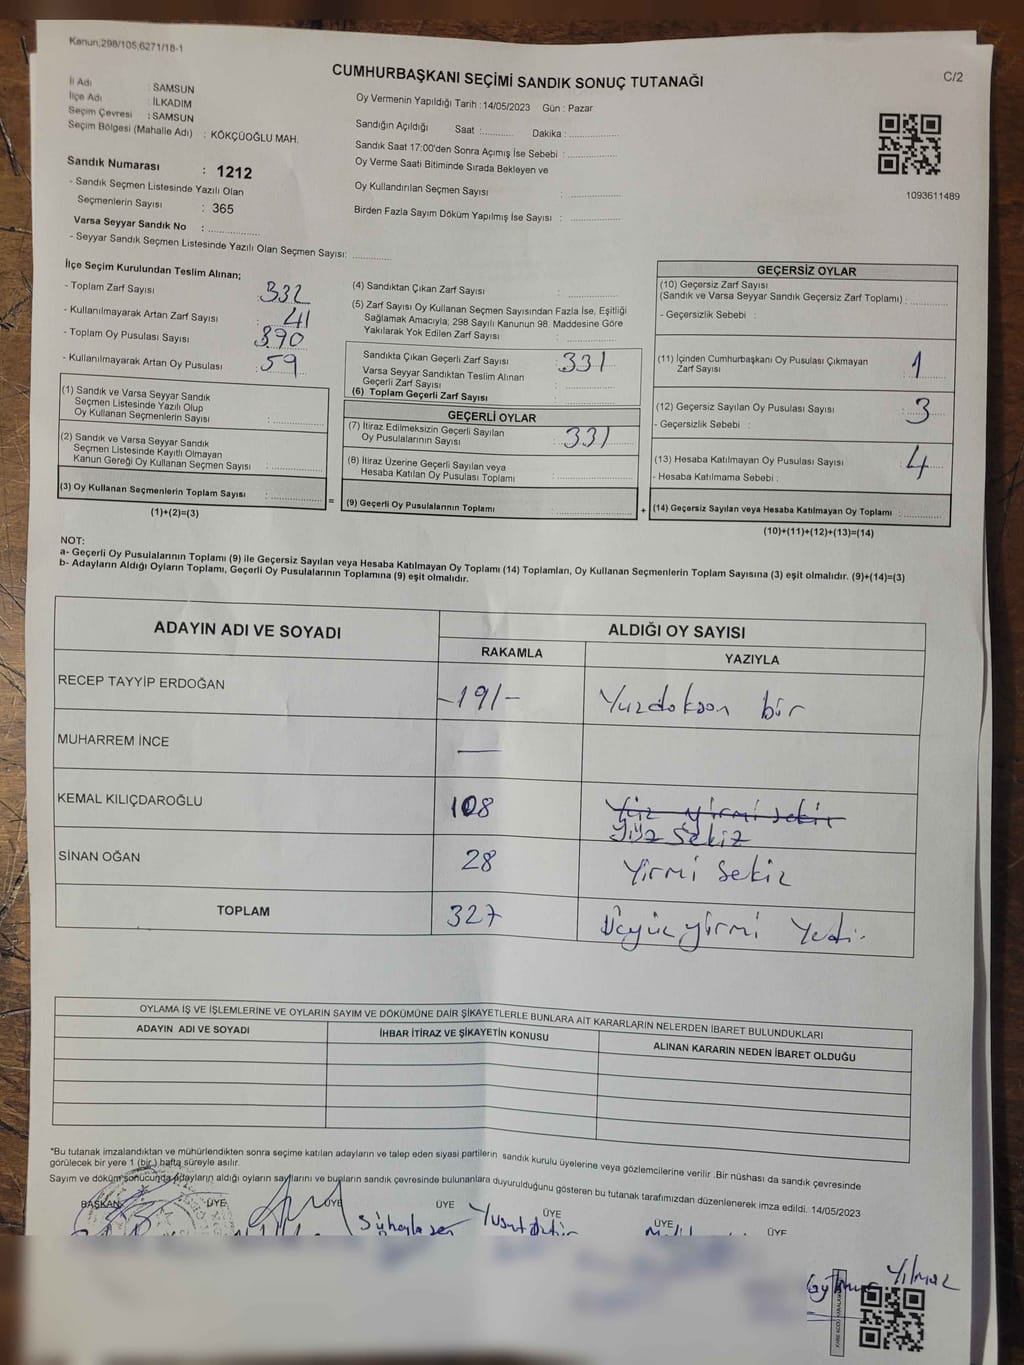 Kanun,298/105,6271/18-1
CUMHURBAŞKANI SEÇİMİ SANDIK SONUÇ TUTANAĞI
C/2
İl Adı : SAMSUN
İlçe Adı : İLKADIM
Seçim Çevresi : SAMSUN
Seçim Bölgesi (Mahalle Adı) : KÖKÇÜOĞLU MAH.
Sandık Numarası : 1212
- Sandık Seçmen Listesinde Yazılı Olan
Seçmenlerin Sayısı : 365
Varsa Seyyar Sandık No : ..............
- Seyyar Sandık Seçmen Listesinde Yazılı Olan Seçmen Sayısı: ............
Oy Vermenin Yapıldığı Tarih : 14/05/2023 Gün : Pazar
Sandığın Açıldığı Saat :.......... Dakika : ...............
Sandık Saat 17:00'den Sonra Açımış İse Sebebi : ...............
Oy Verme Saati Bitiminde Sırada Bekleyen ve
Oy Kullandırılan Seçmen Sayısı : ...............
Birden Fazla Sayım Döküm Yapılmış İse Sayısı : ...............
1093611489
İlçe Seçim Kurulundan Teslim Alınan;
- Toplam Zarf Sayısı : 332
- Kullanılmayarak Artan Zarf Sayısı : 41
- Toplam Oy Pusulası Sayısı : 390
- Kullanılmayarak Artan Oy Pusulası : 59
(1) Sandık ve Varsa Seyyar Sandık
Seçmen Listesinde Yazılı Olup
Oy Kullanan Seçmenlerin Sayısı : ...............
(2) Sandık ve Varsa Seyyar Sandık
Seçmen Listesinde Kayıtlı Olmayan
Kanun Gereği Oy Kullanan Seçmen Sayısı : ...............
(3) Oy Kullanan Seçmenlerin Toplam Sayısı : ............... =
(1)+(2)=(3)
(4) Sandıktan Çıkan Zarf Sayısı : ...............
(5) Zarf Sayısı Oy Kullanan Seçmen Sayısından Fazla İse, Eşitliği
Sağlamak Amacıyla; 298 Sayılı Kanunun 98. Maddesine Göre
Yakılarak Yok Edilen Zarf Sayısı : ...............
Sandıkta Çıkan Geçerli Zarf Sayısı : 331
Varsa Seyyar Sandıktan Teslim Alınan
Geçerli Zarf Sayısı : ...............
(6) Toplam Geçerli Zarf Sayısı : ...............
GEÇERLİ OYLAR
(7) İtiraz Edilmeksizin Geçerli Sayılan
Oy Pusulalarının Sayısı : 331
(8) İtiraz Üzerine Geçerli Sayılan veya
Hesaba Katılan Oy Pusulası Toplamı : ...............
(9) Geçerli Oy Pusulalarının Toplamı : ............... +
GEÇERSİZ OYLAR
(10) Geçersiz Zarf Sayısı
(Sandık ve Varsa Seyyar Sandık Geçersiz Zarf Toplamı) : ..........
- Geçersizlik Sebebi :
(11) İçinden Cumhurbaşkanı Oy Pusulası Çıkmayan
Zarf Sayısı : 1
(12) Geçersiz Sayılan Oy Pusulası Sayısı : 3
- Geçersizlik Sebebi :
(13) Hesaba Katılmayan Oy Pusulası Sayısı : 4
- Hesaba Katılmama Sebebi :
(14) Geçersiz Sayılan veya Hesaba Katılmayan Oy Toplamı : ..........
(10)+(11)+(12)+(13)=(14)
NOT:
a- Geçerli Oy Pusulalarının Toplamı (9) ile Geçersiz Sayılan veya Hesaba Katılmayan Oy Toplamı (14) Toplamları, Oy Kullanan Seçmenlerin Toplam Sayısına (3) eşit olmalıdır. (9)+(14)=(3)
b- Adayların Aldığı Oyların Toplamı, Geçerli Oy Pusulalarının Toplamına (9) eşit olmalıdır.
ADAYIN ADI VE SOYADI
ALDIĞI OY SAYISI
RAKAMLA YAZIYLA
RECEP TAYYİP ERDOĞAN -191- Yuzdokson bir
MUHARREM İNCE —
KEMAL KILIÇDAROĞLU 108 Yüz yirmi sekiz
Yüz sekiz
SİNAN OĞAN 28 Yirmi sekiz
TOPLAM 327 Üçyüz yirmi Yedi.
OYLAMA İŞ VE İŞLEMLERİNE VE OYLARIN SAYIM VE DÖKÜMÜNE DAİR ŞİKAYETLERLE BUNLARA AİT KARARLARIN NELERDEN İBARET BULUNDUKLARI
ADAYIN ADI VE SOYADI İHBAR İTİRAZ VE ŞİKAYETİN KONUSU ALINAN KARARIN NEDEN İBARET OLDUĞU
*Bu tutanak imzalandıktan ve mühürlendikten sonra seçime katılan adayların ve talep eden siyasi partilerin sandık kurulu üyelerine veya gözlemcilerine verilir .Bir nüshası da sandık çevresinde
görülecek bir yere 1 (bir) hafta süreyle asılır.
Sayım ve döküm sonucunda Adayların aldığı oyların sayılarını ve bunların sandık çevresinde bulunanlara duyurulduğunu gösteren bu tutanak tarafımızdan düzenlenerek imza edildi. 14/05/2023
BAŞKAN ÜYE ÜYE ÜYE ÜYE ÜYE ÜYE
Yılmaz